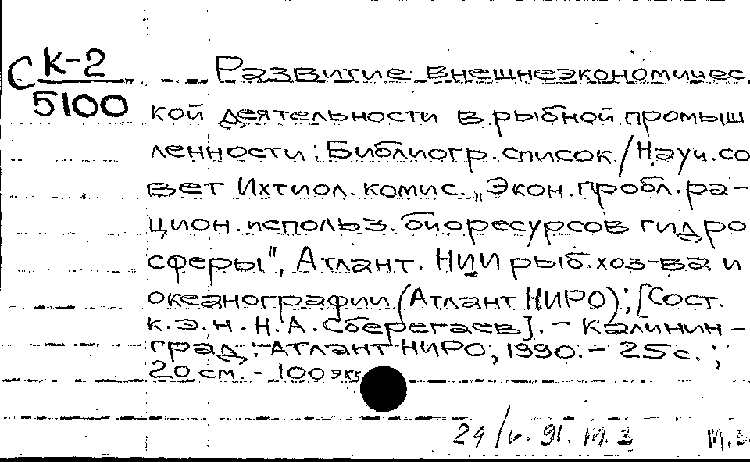 С К-2 Развитие внешнеэкономичес
5100 кой деятельности в рыбной промыш
ленности: Библиогр. список / Науч. со
вет Ихтиол. комис. „Экон. пробл. ра-
цион. использ. биоресурсов гидро
сферы", Атлант. НИИ рыб. хоз-ва и
океанографии (Атлант НИРО); [Сост.
к.э.н. Н.А. Сберегаев]. - Калинин-
град: Атлант НИРО, 1990. - 25 с.;
20 см. - 100 экз